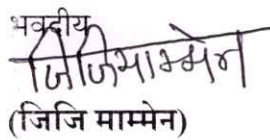 भवदीय
जिजिमाम्मेन
(जिजि माम्मेन)